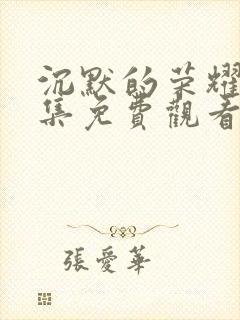 沉默的荣耀
集免費觀看
張愛華